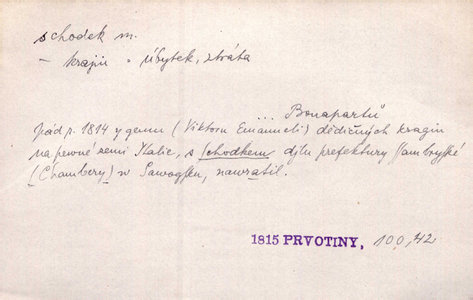 schodek m.
– krajin : úbytek, ztráta
... Bonapartů
pád r. 1814 y gemu (Viktoru Emanueli) dědičných kragin
na pewné zemi Italie, s schodkem djlu prefektury Šambryské
(Chambery) w Sawogsku, nawrátil.
1815 PRVOTINY, 100, 42